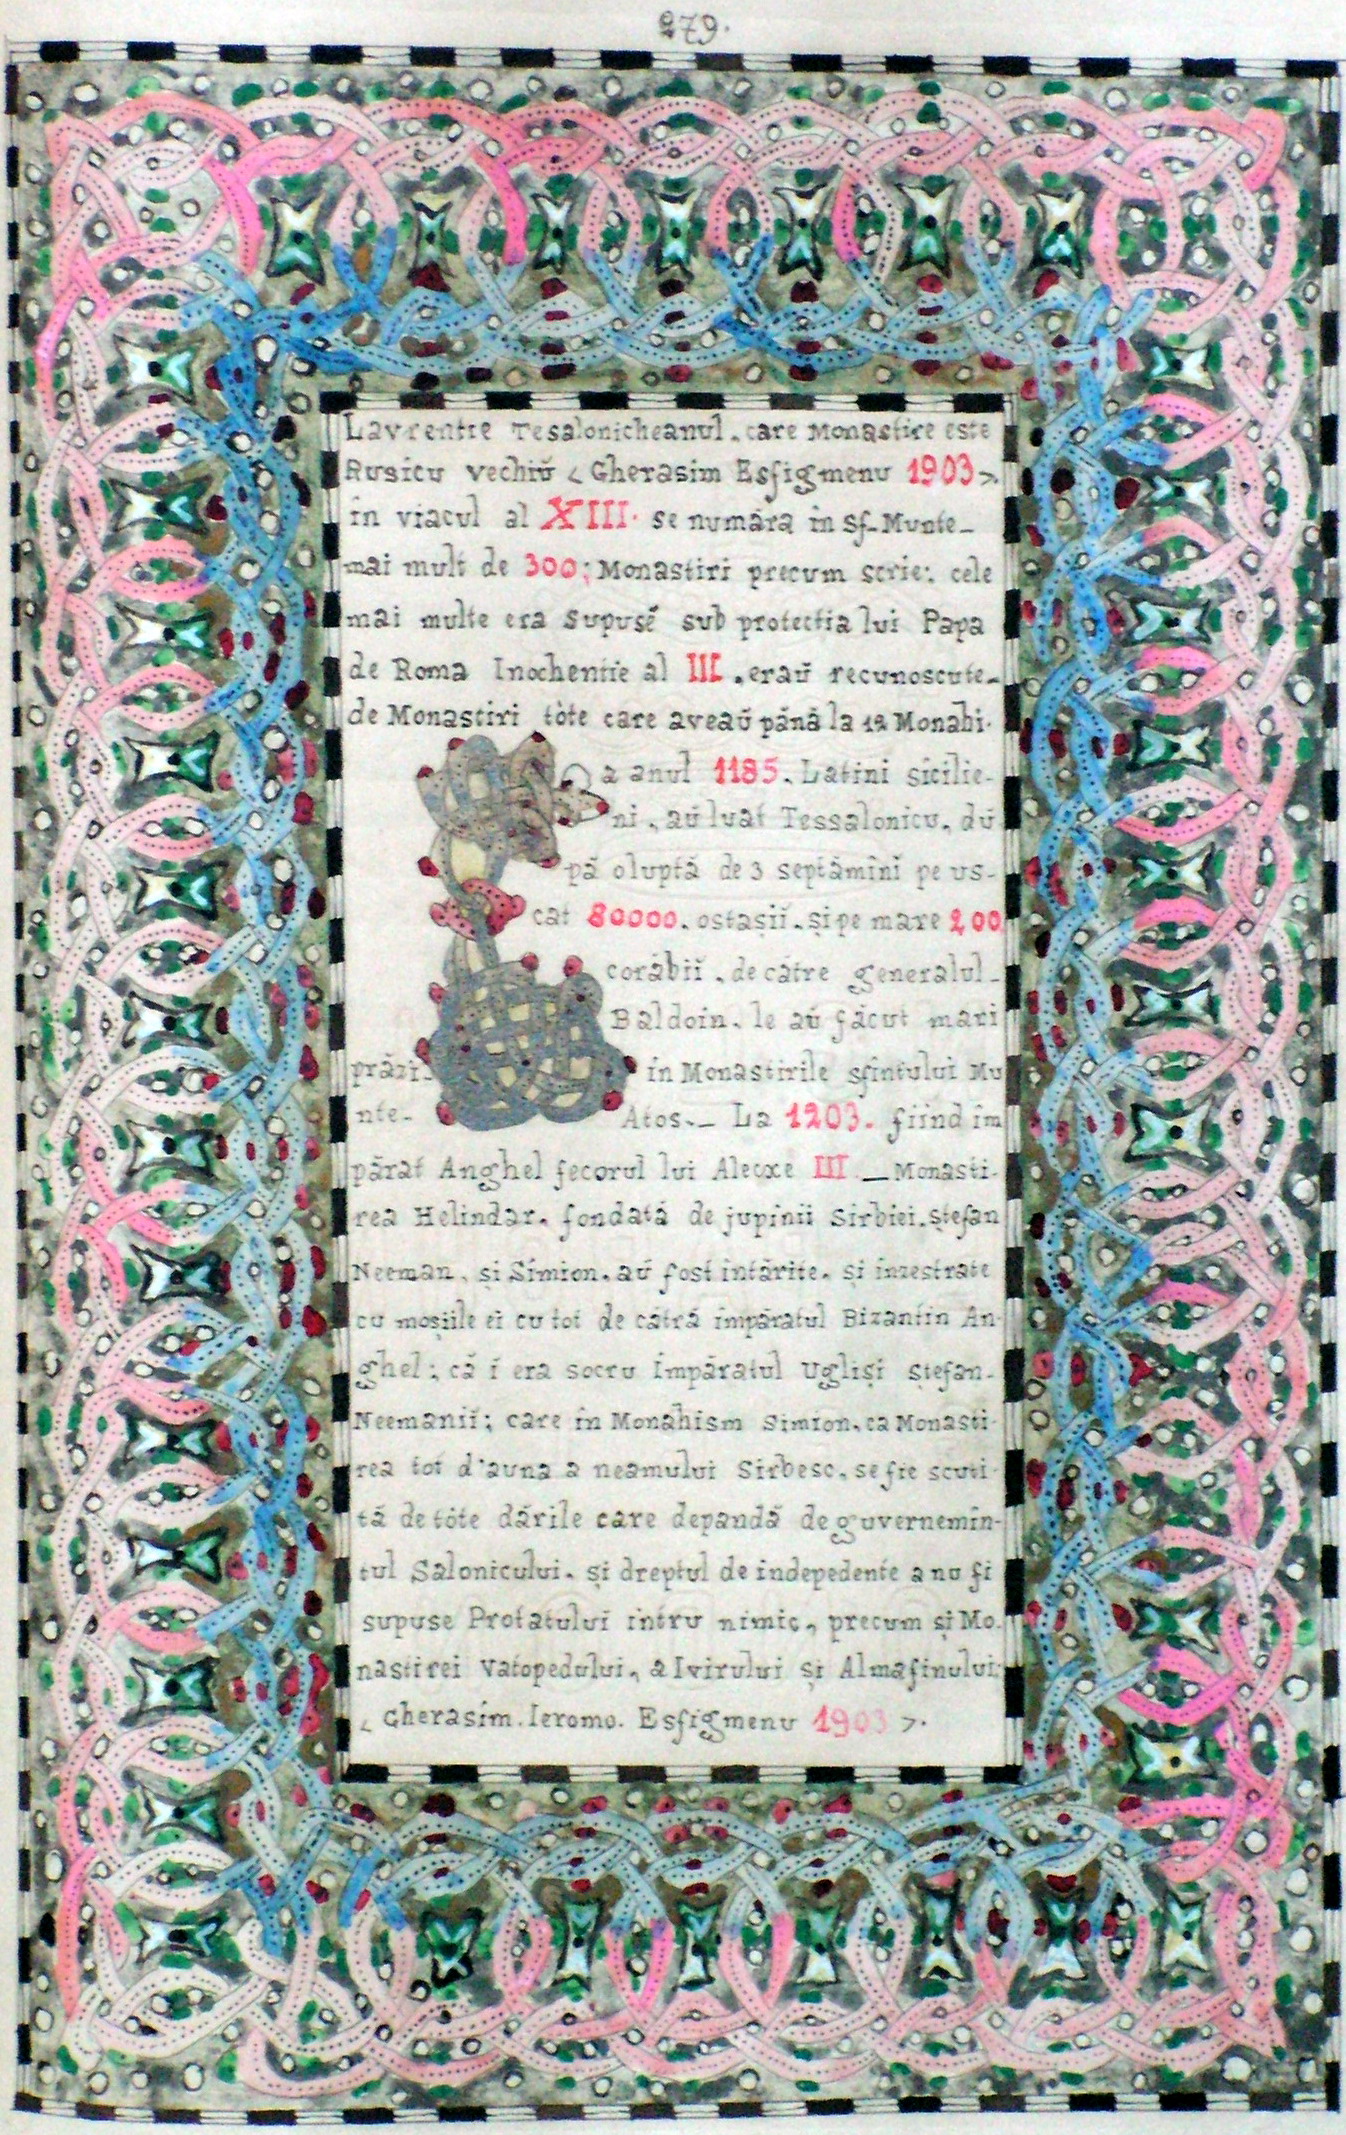 279.
Lavrentie Tesalonicheanul. care Monastire este
Rusicu vechiŭ < Gherasim Esfigmenu 1903 >
în viacul al XIII. se numără în Sf_ Munte_
mai mult de 300; Monastiri precum scrie: cele
mai multe era supusĕ sub protectia lui Papa
de Roma Inochentie al III. eraŭ recunoscute_
de Monastiri tòte care aveaŭ până la 12 Monahi.
a anul 1185. Latini sicilie-
ni. aŭ luat Tessalonicu. dŭ
pă oluptă de 3 septămîni pe us-
cat 80000. ostașiĭ. și pe mare 200.
corăbiĭ. de cătrе generalul_
Baldoin. le aŭ făcut mari
prăzi. in Monastirile sfîntului Mu
nte_ Atos._ La 1203. fiind îm
părat Anghel fecorul lui Alecxe III._ Monasti-
rea Helindar. fondată de jupinii Sirbiei. ștefan
Neeman. și Simion. aŭ fost intărite. și inzestrate
cu moșiile ei cu tot de cătră impăratul Bizantin An-
ghel: că i era socru Împăratul Ugliși Ștefan_
Neemaniĭ; care in Monahism Simion. ca Monasti-
rea tot d'auna a neamului Sirbesc. se fie scuti-
tă de tòte dările care depandă de guvernemîn-
tul Salonicului. și dreptul de indepedente a nu fi
supuse Protatului intru nimic, precum și Mo.
nastirei Vatopedului, a Ivirului și Almafinului;
< Gherasim. Ieromo. Esfigmenu 1903 >.